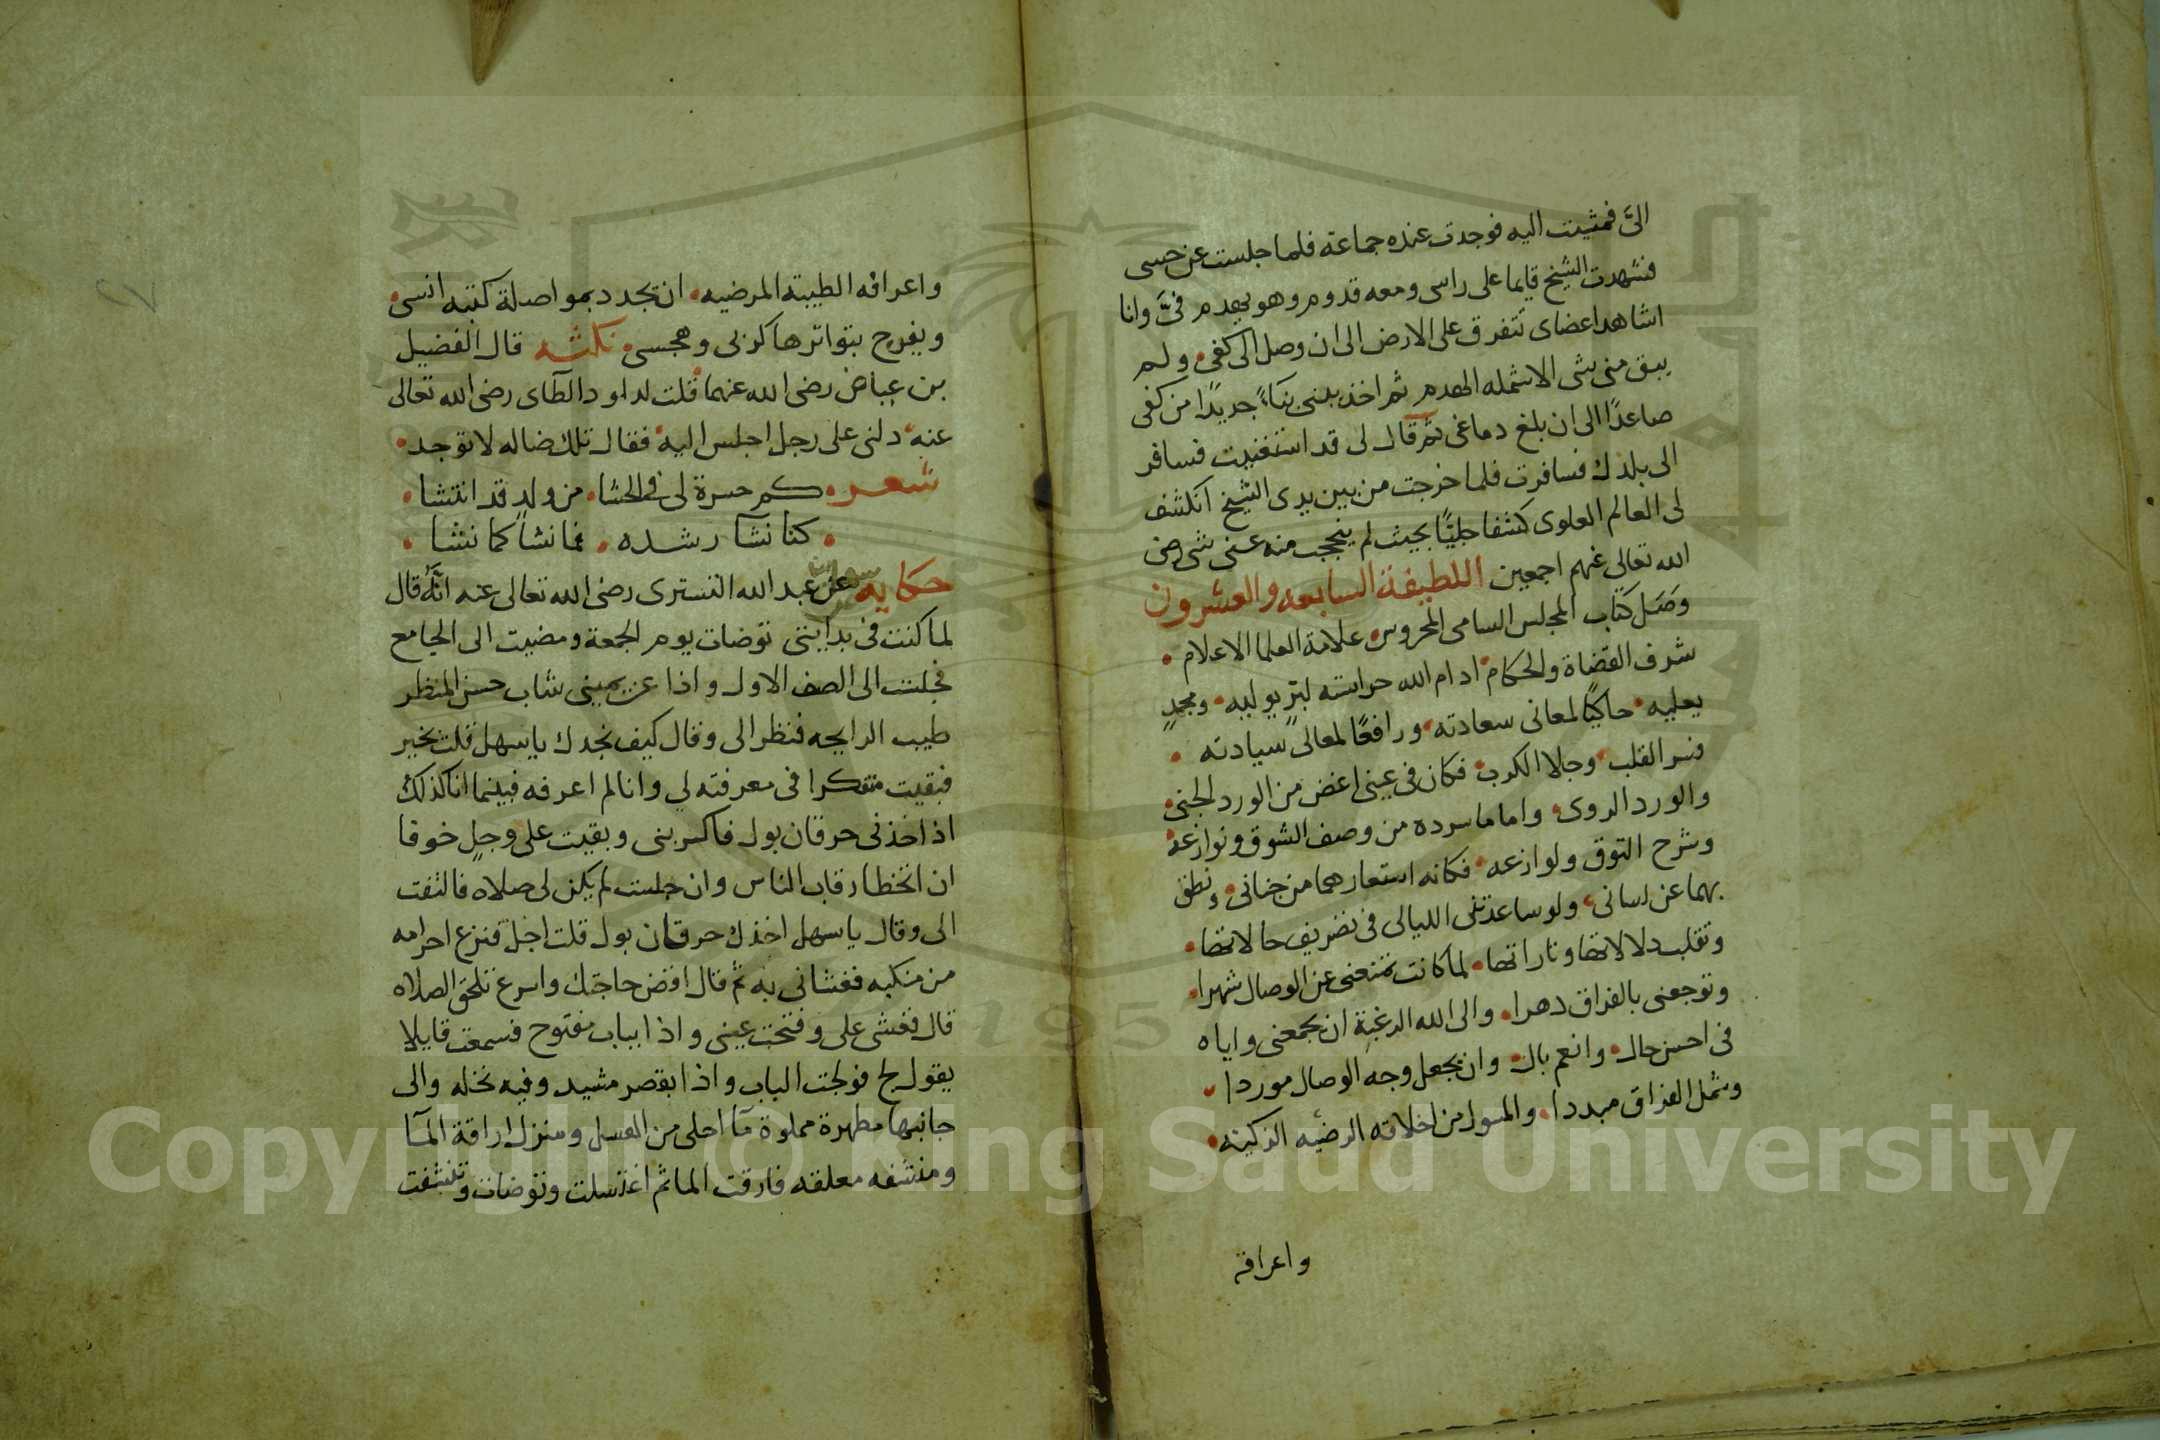 الىَّ فمشيت اليه فوجدت عنده جماعة فلما جلست عن حسى
فشهدت الشيخ قايما على راسى ومعه قدوم وهو يهدم فىَّ وانا
اشاهد اعضاى تتفرق على الارض الى ان وصل الى كفى ولم
يبق منى شى الا شمله الهدم ثم اخذ يبنى بناءً جديدًا من كفى
صاعدًا الى ان بلغ دماغى ثم قال لى قد استغنيت فسافر
الى بلدك فسافرت فلما خرجت من بين يدى الشيخ انكشف
لى العالم العلوى كشفا جليًّا بحيث لم ينحجب منه عنى شى رضى
الله تعالى عنهم اجمعين اللطيفة السابعه والعشرون
وصَل كتاب المجلس السامى المحروس علامة العلما الاعلام
شرف القضاة والحكام ادام الله حراسته لبرٍ يوليه ومجدٍ
يعليه حاكيًا لمعانى سعادته ورافعًا لمعالى سيادته
فسر القلب وجلا الكرب فكان فى عينى اغض من الورد الجنى
والورد الروى واما ما سرده من وصف الشوق ونوازعه
وشرح التوق ولوازعه فكانه استعارهما من جنانى ونطق
بهما عن لسانى ولو ساعدتنى الليالى فى تصريف حالاتها
وتقلب دلالاتها وتاراتها لما كانت تمنعنى عن الوصال شهرا
وتوجعنى بالفراق دهرا والى الله الرغبة ان يجمعنى واياه
فى احسن حال وانعم بال وان يجعل وجه الوصال موردا
وشمل الفراق مبددا والمسول من اخلاقه الرضيه الزكيته
واعراقه
واعراقه الطيبة المرضيه ان تجدد بمواصلة كتبه انسى
ويفرج بتواترها كربى وهجسى نكته قال الفضيل
بن عياض رضى الله عنهما قلت لداود الطآى رضى الله تعالى
عنه دلنى على رجل اجلس اليه فقال تلك ضاله لا توجد
شعر كم حسرة لى فى الحشا من ولدٍ قد انتشا
كنا نشآ رشده فما نشأ كما نشا
حكايه عن عبد الله التسترى رضى الله تعالى عنه انَّهُ قال
لما كنت فى بدايتى توضات يوم الجمعة ومضيت الى الجامع
فجلست الى الصف الاول واذا عن يمينى شاب حسن المنظر
طيب الرايحه فنظر الى وقال كيف نجدك ياسهل قلت بخير
فبقيت متفكرا فى معرفته لي وانا لم اعرفه فبينما انا كذلك
اذ اخذنى حرقان بول فاكربنى وبقيت على وجلٍ خوفا
ان اتخطا رقاب الناس وان جلست لم يكن لى صلاه فالتفت
الى وقال ياسهل اخذك حرقان بول قلت اجل فنزع احرامه
من منكبه فغشانى به ثم قال اقض حاجتك واسرع تلحق الصلاه
قال فغشى على وفتحت عينى واذا بباب مفتوح فسمعت قايلا
يقول لج فولجت الباب واذا بقصر مشيد وفيه نخله والى
جانبها مطهرة مملوة مآ احلى من العسل ومنزل اراقة المآ
ومنشفه معلقه فارقت الما ثم اغتسلت وتوضات وتنشفت
Copyright © King Saud University
195